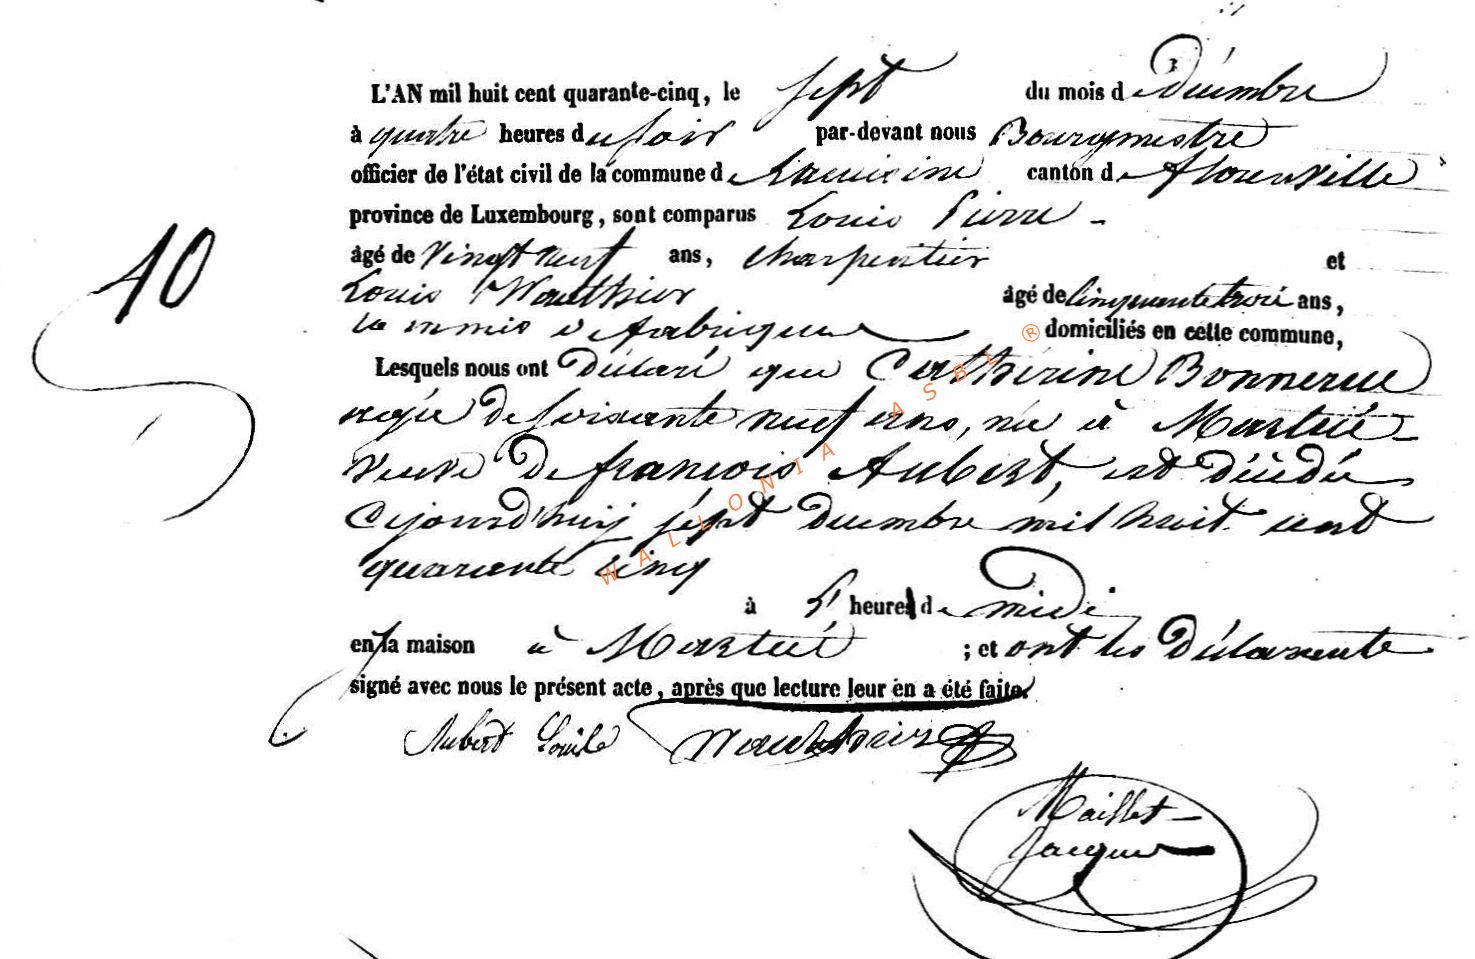 L'AN mil huit cent quarante-cinq, le sept du mois de décembre
à quatre heures du soir par-devant nous Bourgmestre
officier de l'état civil de la commune de Lacuisine canton de florenville
province de Luxembourg, sont comparus Louis Pierre -
âgé de vingt neuf ans, charpentier et
40
Louis Wauthier âgé de cinquante trois ans,
commis de fabrique domiciliés en cette commune,
Lesquels nous ont déclaré que Catherine Bonnerue
agée de soixante neuf ans, née à Martué
veuve de françois Aubert, est décédée
cejourd'huy sept decembre mil huit cent
quarante cinq
à l' heure de midi
en sa maison à Martué ; et ont les déclarants
signé avec nous le présent acte, après que lecture leur en a été faite.
Aubert Wauthier
Maillet
Jacques
WALLONIA ASBL ®